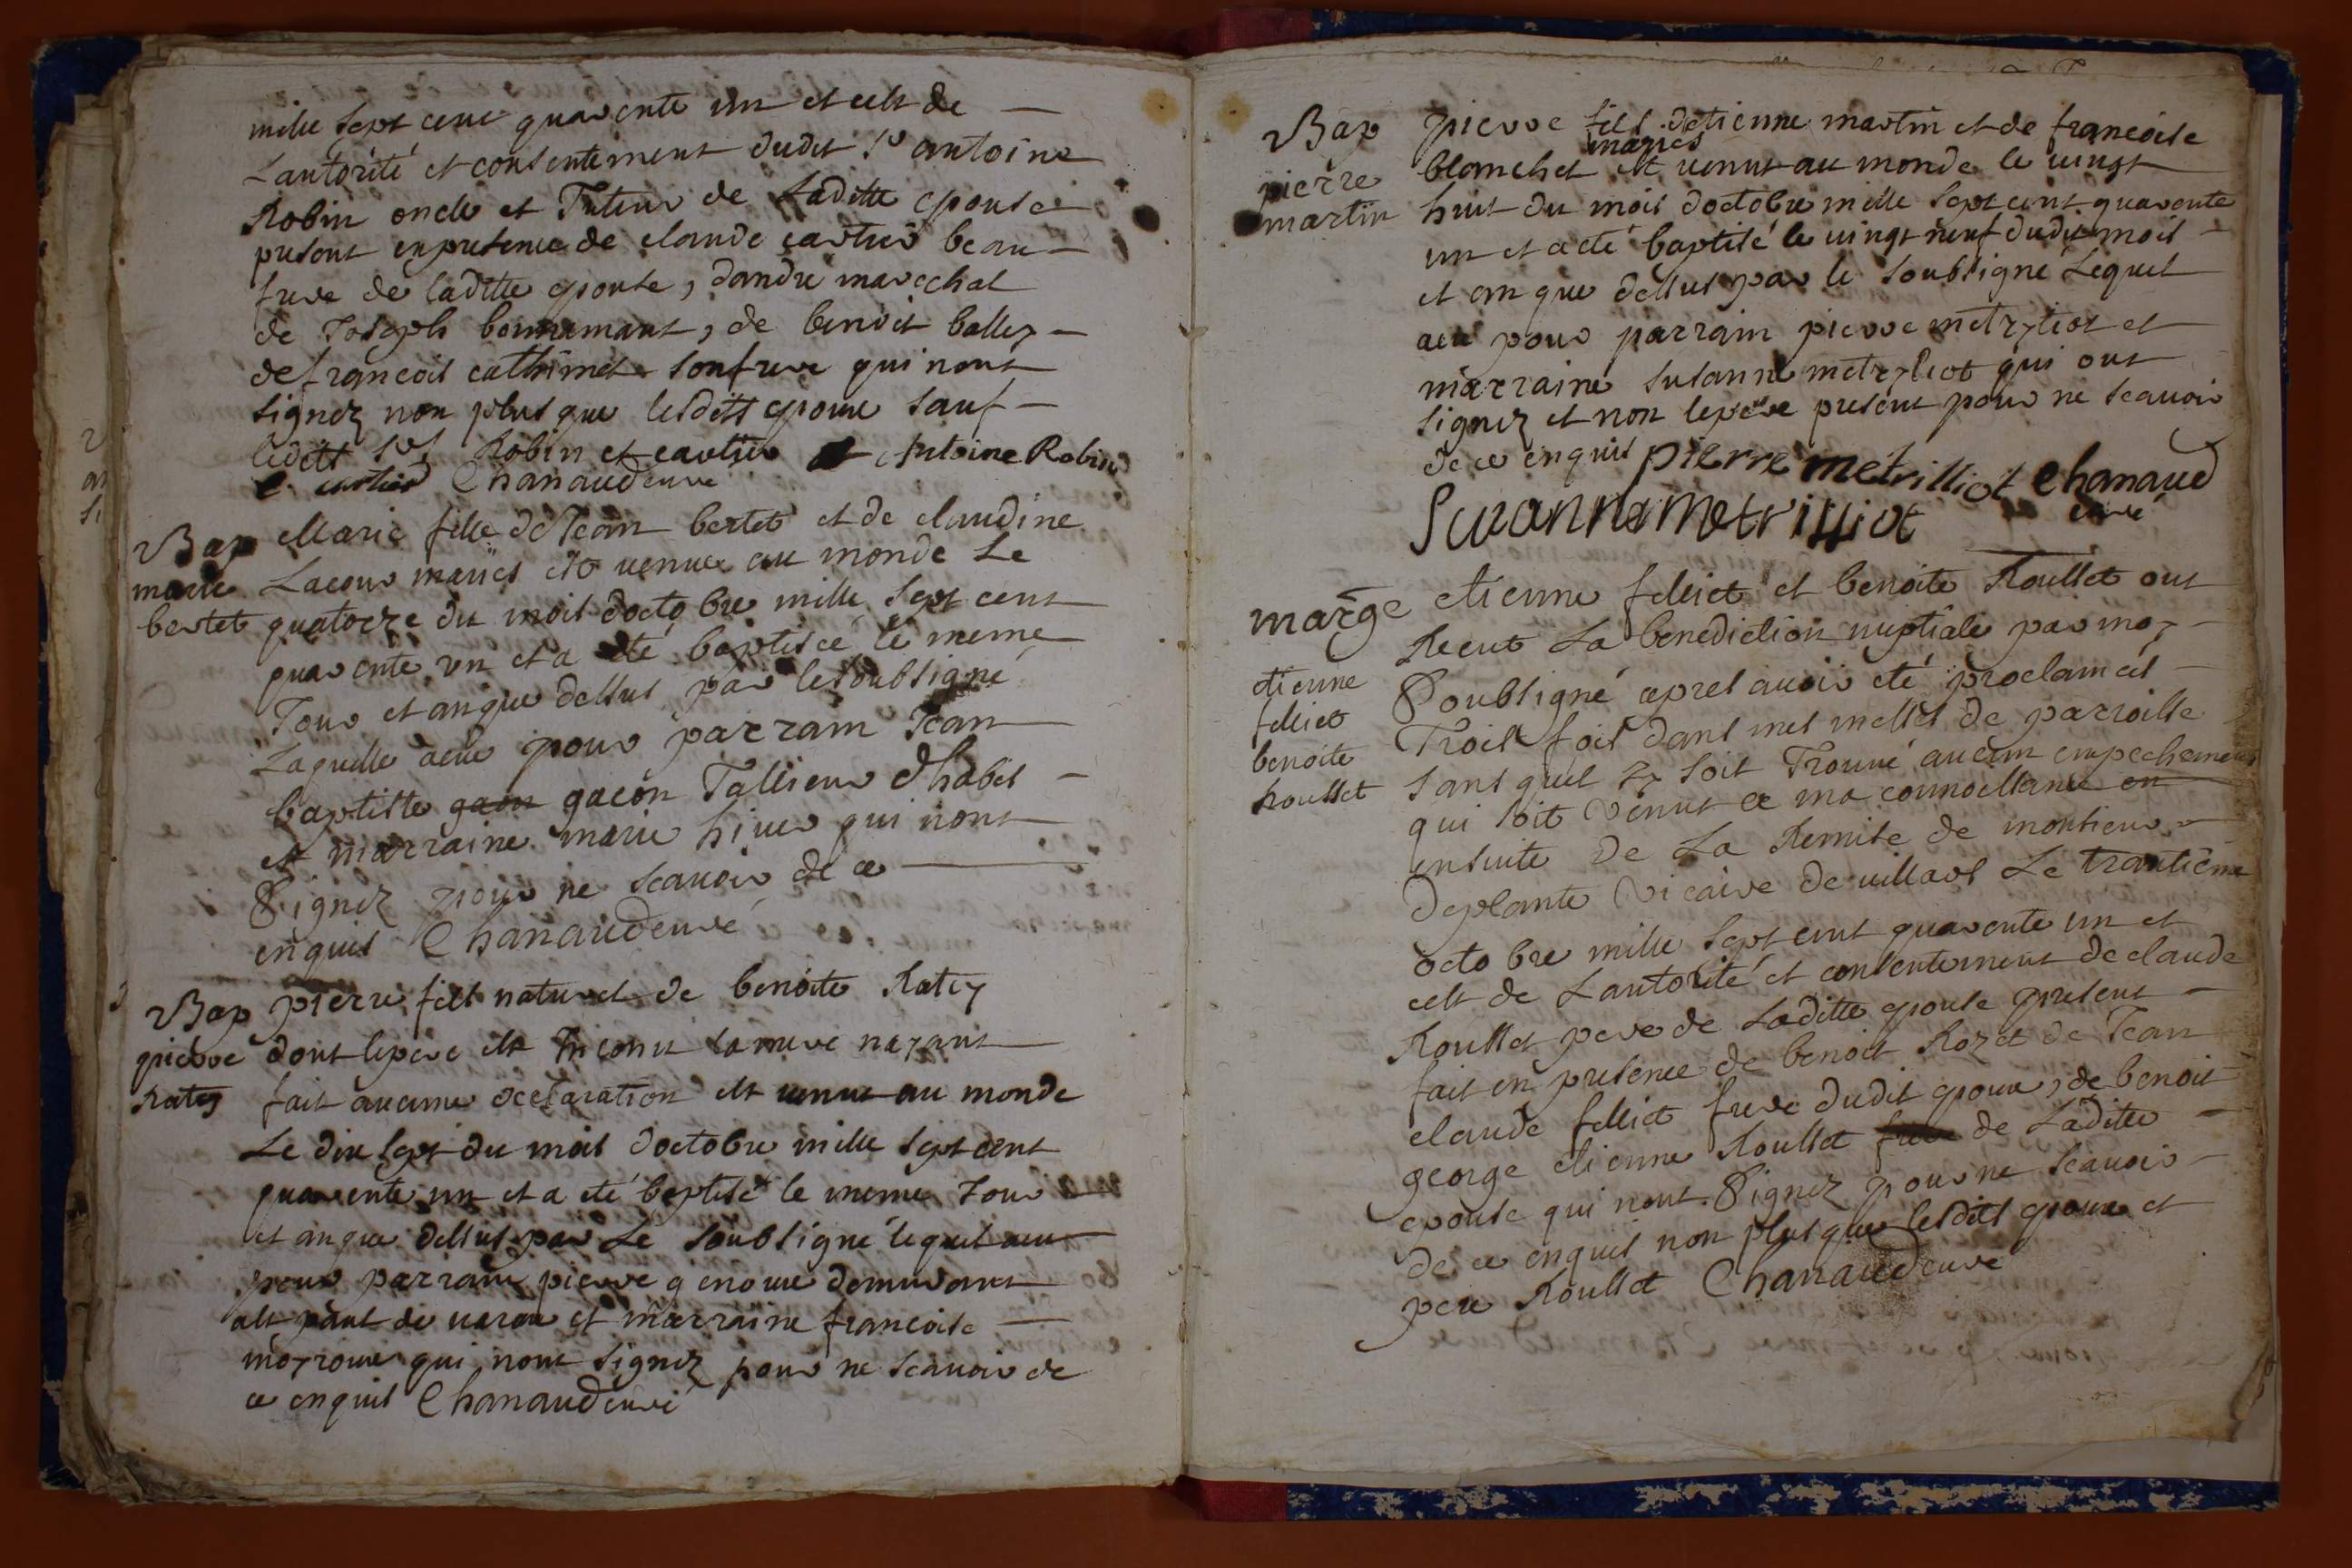 mille sept cent quarente un et cest de
Lautorité et consentement dudit Sr antoine
Robin oncle et Tuteur de Laditte epouse
present en presence de claude cartier beau
frere de laditte epouse, dandré marechal
de Joseph bonnemant, de benoit balley
de francois cathimet son frere qui nont
signez non plus que lesdits epoux sauf
lesdits Srs Robin et cartier Antoine Robin
C cartier Chanaud curé
Bap
marie
bertet
Marie fille de Jean bertet et de claudine
Lacour mariés est venue au monde Le
quatorze du mois doctobre mille sept cent
quarente un et a été baptisée le meme
Jour et an que dessus par le soubsigné
Laquelle a eue pour parrain Jean
baptiste gacon Tallieur dhabis
et marraine marie hiver qui nont
Signez pour ne scauoir de ce
enquis Chanaud curé
Bap
pierre
Ratey
pierre fils naturel de benoite Ratey
dont le pere est Inconu la mere nayant
fait aucune declaration est venu au monde
Le dix sept du mois doctobre mille sept cent
quarente un et a eté baptisé le meme Jour
et an que dessus par Le soubsigné lequel a eu
pour parrain pierre genoux demeurant
a st paul de varax et marraine francoise
moyroux qui nont signez pour ne scauoir de
ce enquis Chanaud curé
Bap
pierre
martin
pierre fils detienne martin et de francoise
mariés
blanchet est venut au monde le uingt
huit du mois doctobre mille sept cent quarente
un et a eté baptisé le uingt neuf dudit mois
et an que dessus par le soubsigné Lequel
a eu pour parrain pierre metryliot et
marraine susanne metryliot qui ont
signez et non le pere present pour ne scauoir
de ce enquis pierre metrilliot Chanaud
curé
Suzanne metrilliot
marge
etienne
felliet
benoite
Roullet
etienne felliet et benoite Roullet ont
Recut La benediction nuptiale par moy
Soubsigné apres auoir eté proclamés
Trois fois dans mes messes de parroisse
sans quil Ty soit Trouué aucun empechement
qui soit Venut a ma connoissance en
ensuite de La Remise de monsieur
Deplante Vicaire de uillars Le trantième
octobre mille sept cent quarente un et
cest de Lautorité et consentement de claude
Roullet pere de Laditte epouse present
fait en presence de benoit Rozet de Jean
claude felliet frere dudit epoux, de benoit
george etienne Roullet de Laditte
epouse qui nont Signez pour ne scauoir
de ce enquis non plus que lesdits epoux et
pere Roullet Chanaud curé